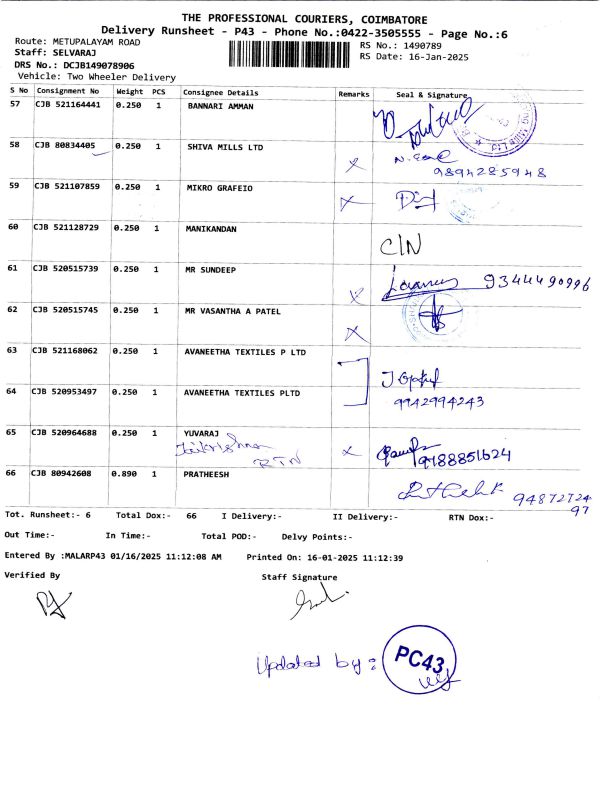 THE PROFESSIONAL COURIERS, COIMBATORE
Delivery Runsheet - P43 - Phone No.:0422-3505555 - Page No.:6
Route: METUPALAYAM ROAD
RS No.: 1490789
Staff: SELVARAJ
RS Date: 16-Jan-2025
DRS No.: DCJB149078906
Vehicle: Two Wheeler Delivery
S No Consignment No Weight PCS Consignee Details Remarks Seal & Signature
57 CJB 521164441 0.250 1 BANNARI AMMAN
58 CJB 80834405 0.250 1 SHIVA MILLS LTD
9894285948
59 CJB 521107859 0.250 1 MIKRO GRAFEIO
60 CJB 521128729 0.250 1 MANIKANDAN
C/N
61 CJB 520515739 0.250 1 MR SUNDEEP
9344490996
62 CJB 520515745 0.250 1 MR VASANTHA A PATEL
63 CJB 521168062 0.250 1 AVANEETHA TEXTILES P LTD
64 CJB 520953497 0.250 1 AVANEETHA TEXTILES PLTD
9942994243
65 CJB 520964688 0.250 1 YUVARAJ
RTN
66 CJB 80942608 0.890 1 PRATHEESH
9487272497
Tot. Runsheet:- 6 Total Dox:- 66 I Delivery:- II Delivery:- RTN Dox:-
Out Time:- In Time:- Total POD:- Delvy Points:-
Entered By :MALARP43 01/16/2025 11:12:08 AM Printed On: 16-01-2025 11:12:39
Verified By Staff Signature
Updated by: PC43